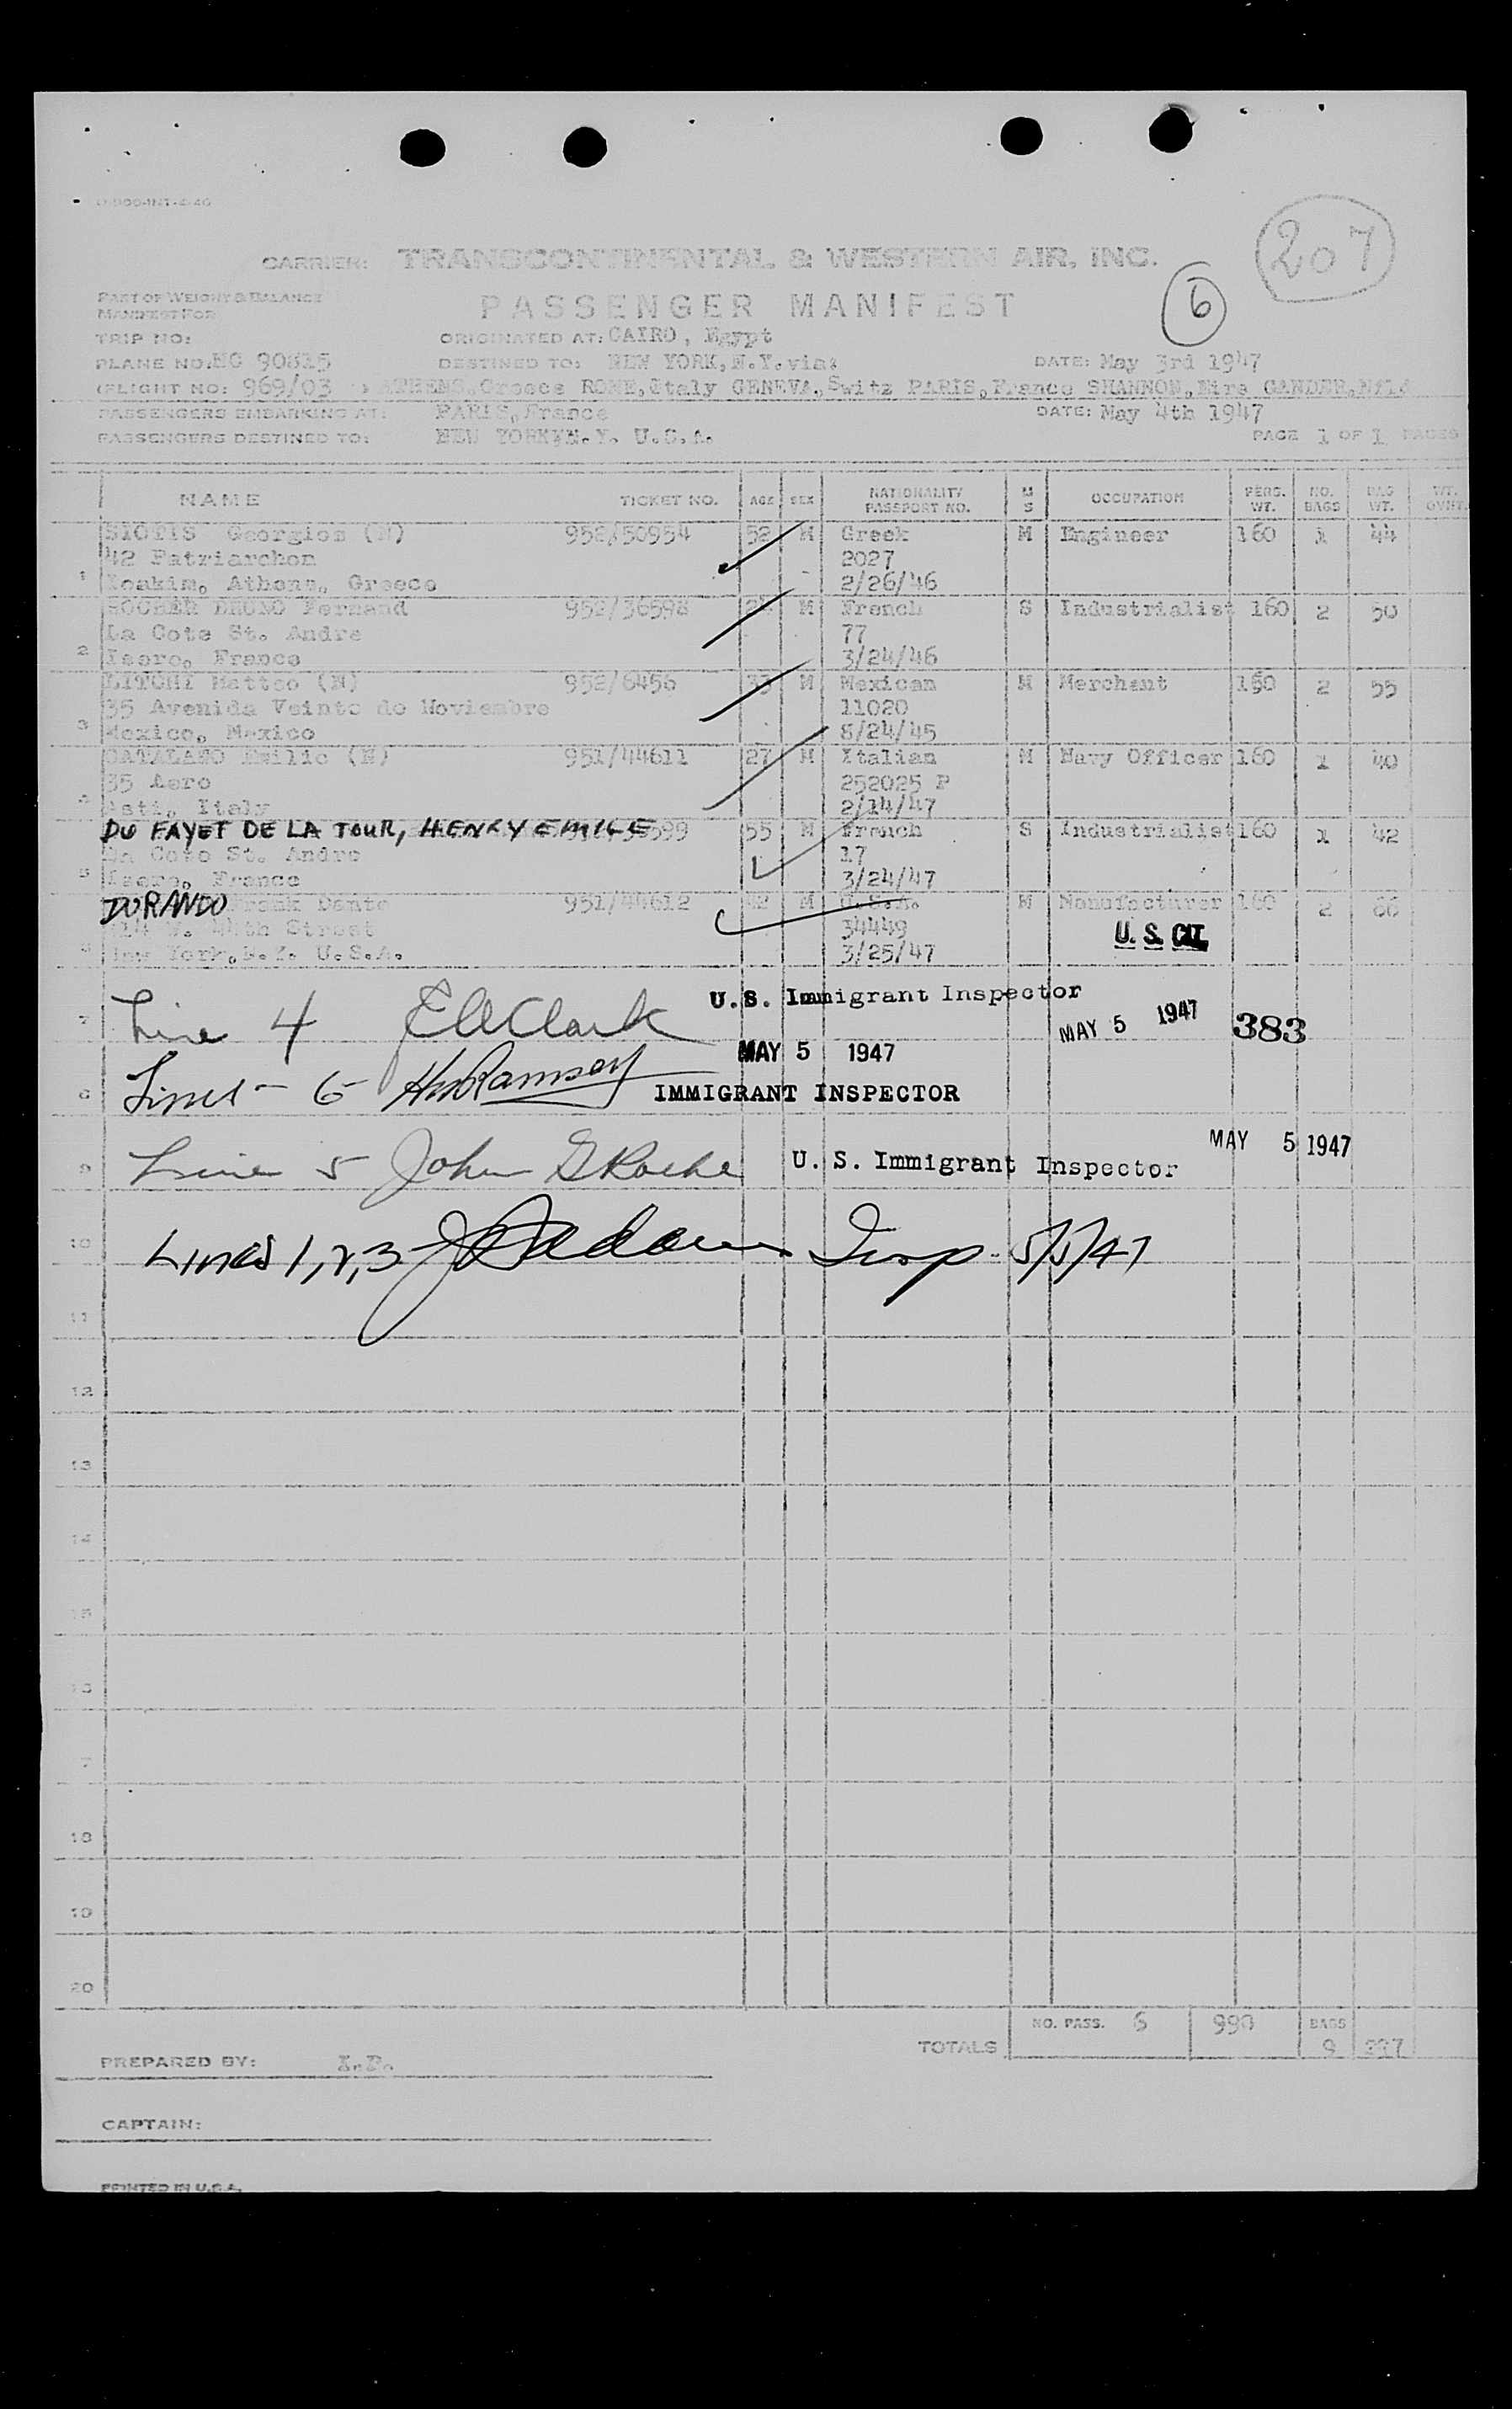 207
CARRIER: TRANSCONTINENTAL & WESTERN AIR, INC.
6
PART OF WEIGHT & BALANCE
MANIFEST FOR
PASSENGER MANIFEST
TRIP NO:
ORIGINATED AT: CAIRO, Egypt
PLANE NO: NC 90815 DESTINED TO: NEW YORK, N.Y. via: DATE: May 3rd 1947
(FLIGHT NO: 969/03 ) ATHENS, Greece ROME, Italy GENEVA, Switz PARIS, France SHANNON, Eire GANDER, Nfld
PASSENGERS EMBARKING AT: PARIS, France DATE: May 4th 1947
PASSENGERS DESTINED TO: NEW YORK, N.Y. U.S.A. PAGE 1 OF 1 PAGES
NAME TICKET NO. AGE SEX NATIONALITY PASSPORT NO. M S OCCUPATION PERS. WT. NO. BAGS BAG WT. WT. OVHT.
SIOTIS Georgios (N) 952/50954 52 M Greek M Engineer 160 1 44
42 Patriarchon 2027
1 Ioakim, Athens, Greece 2/26/46
ROCHER BRUNO Fernand 952/36598 M French S Industrialist 160 2 50
La Cote St. Andre 77
2 Isere, France 3/24/46
LITCHI Matteo (N) 952/6456 33 M Mexican M Merchant 190 2 55
35 Avenida Veinte de Noviembre 11020
3 Mexico, Mexico 8/24/45
CATALANO Emilio (N) 951/44611 27 M Italian M Navy Officer 160 1 40
35 Aero 252025 P
4 Asti, Italy 2/14/47
DU FAYET DE LA TOUR, HENRY EMILE 599 55 M French S Industrialist 160 1 42
La Cote St. Andre 17
5 Isere, France 3/24/47
DURANDO Frank Dante 951/44612 42 M U.S.A. M Manufacturer 160 2 66
W. 44th Street 34449 U. S. CIT.
6 New York, N.Y. U.S.A. 3/25/47
7 Line 4 E W Clark U.S. Immigrant Inspector MAY 5 1947 383
MAY 5 1947
8 Lines - 6 - Ramsey IMMIGRANT INSPECTOR
9 Line 5 John G Roche U. S. Immigrant Inspector MAY 5 1947
10 Lines 1,2,3 Insp. 5/5/47
11
12
13
14
15
16
17
18
19
20
TOTALS NO. PASS. 6 990 BAGS 9 297
PREPARED BY:
CAPTAIN:
PRINTED IN U.S.A.